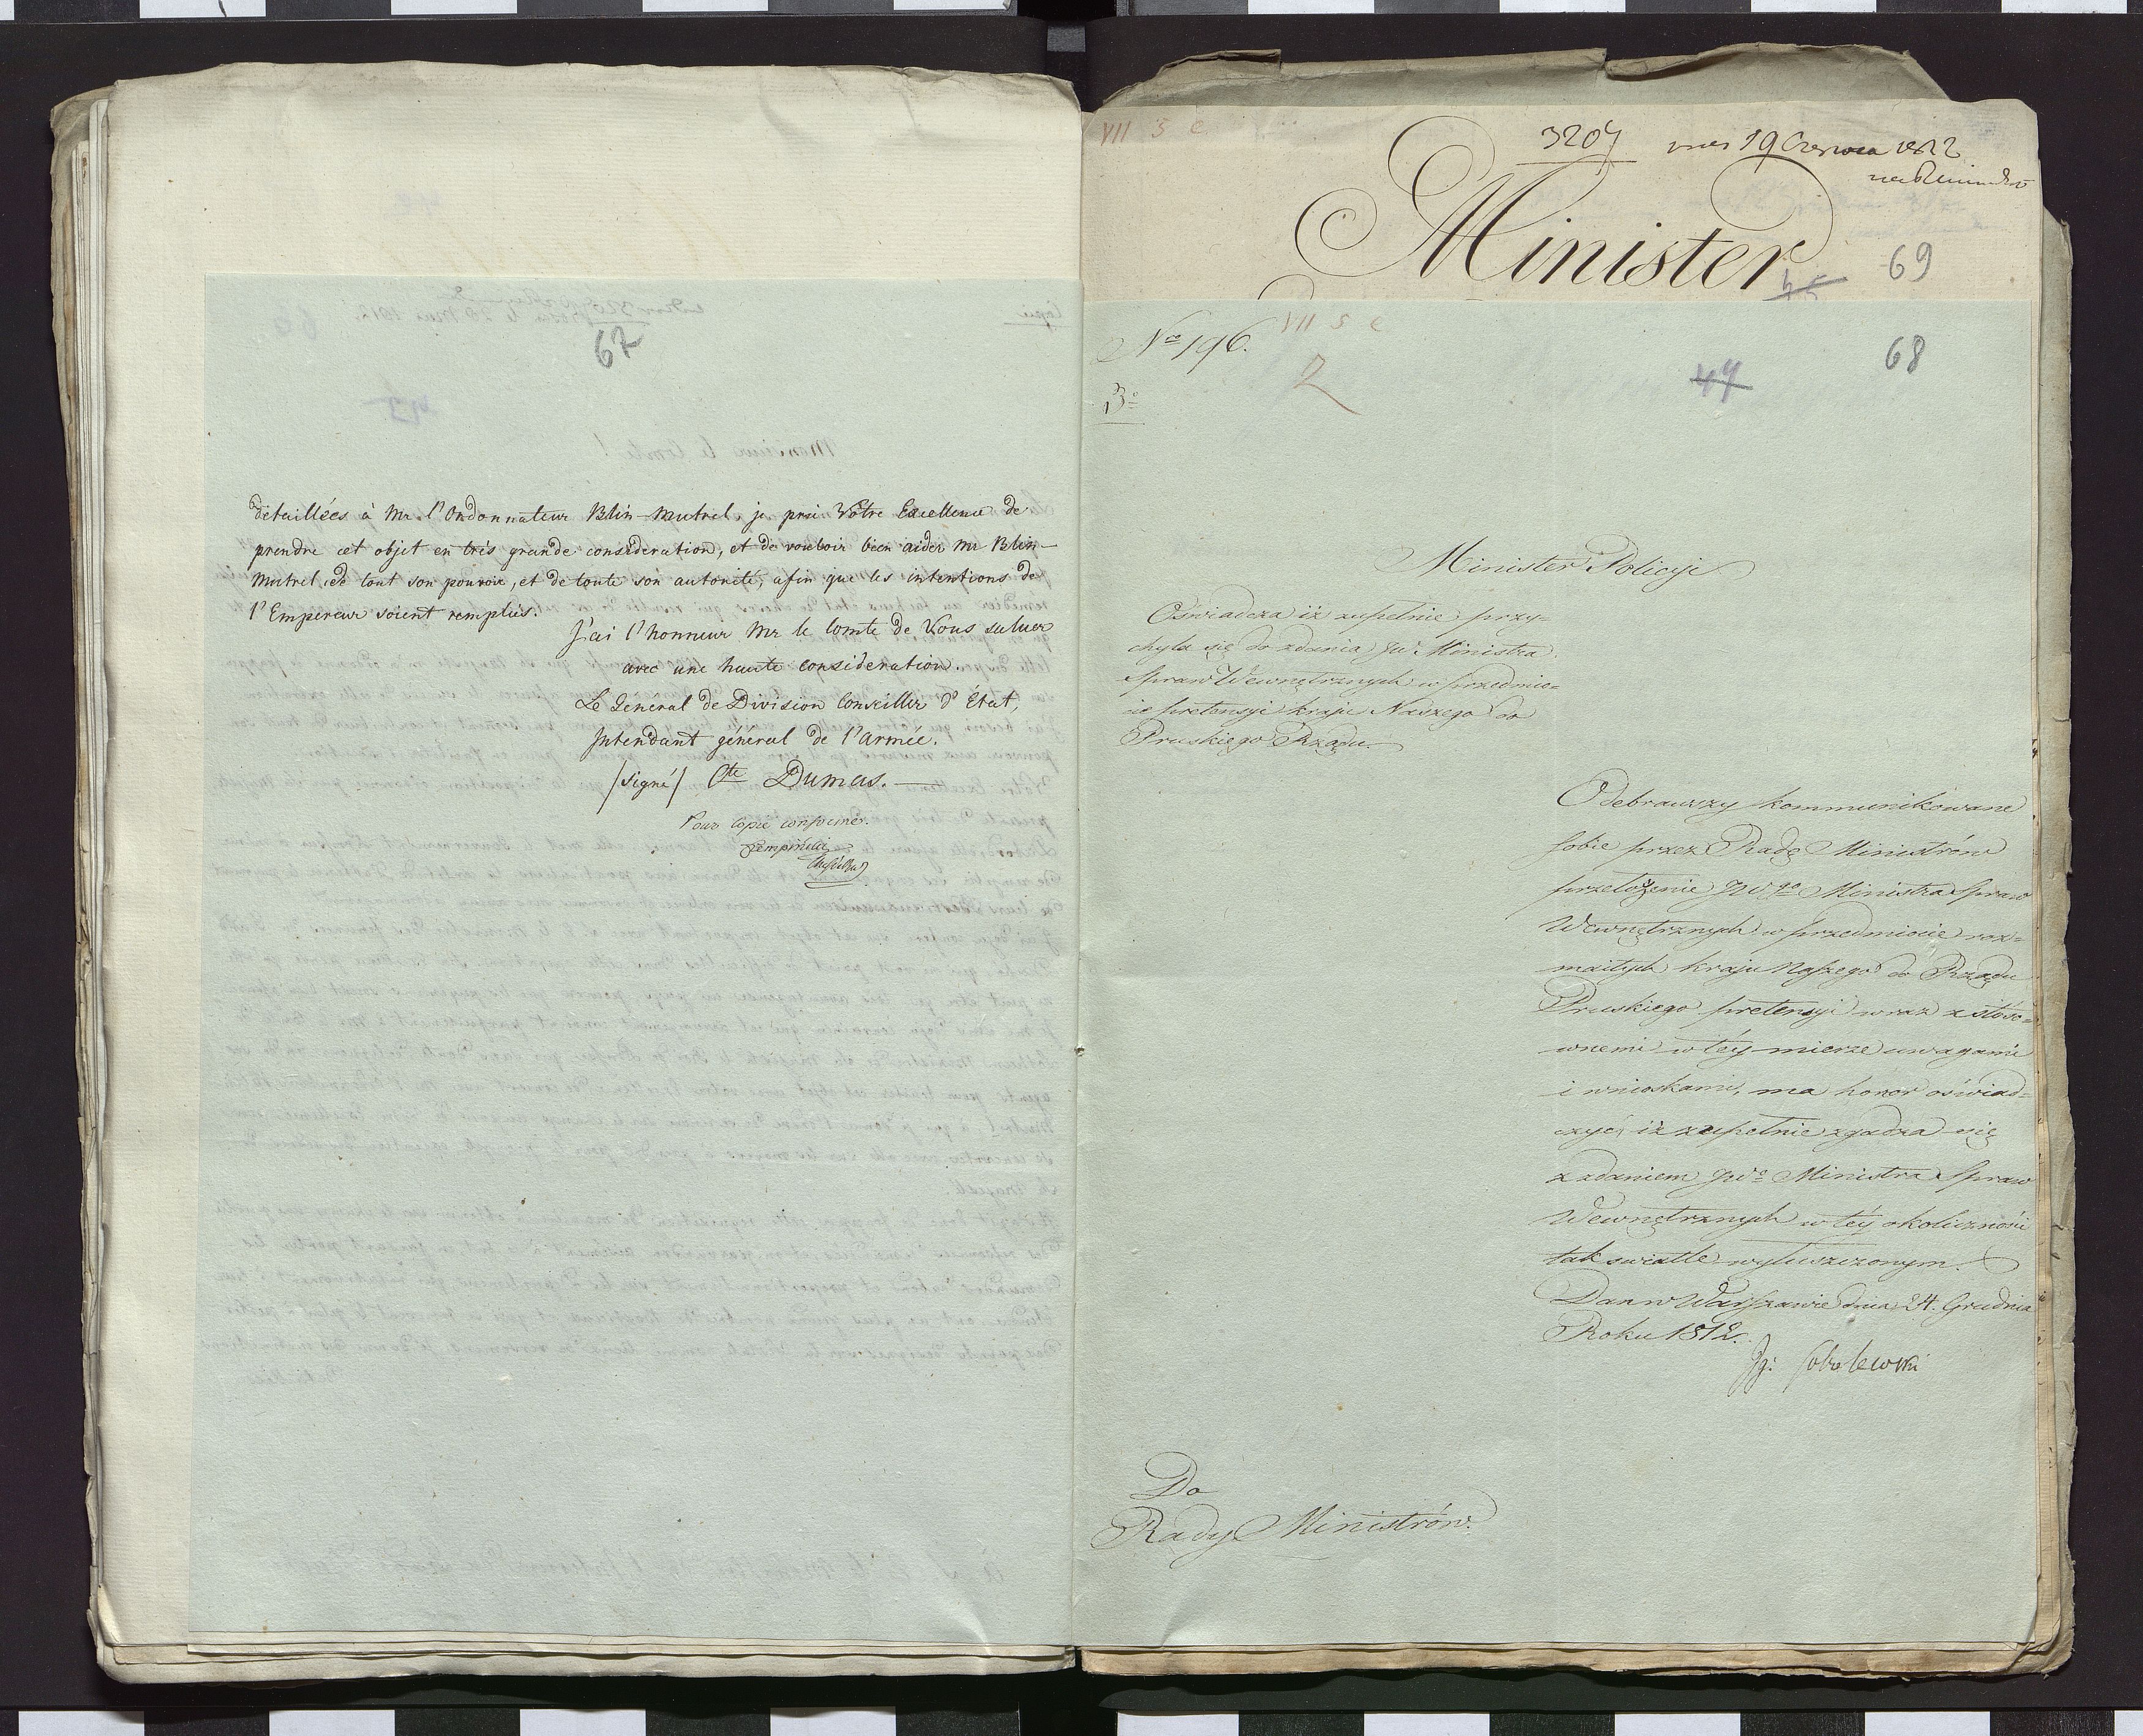 67
détaillées à Mr. l'Ordonnateur Blin-Mutrel, je prie Votre Excellence de
prendre cet objet en très grande considération, et de vouloir bien aider Mr Blin-
Mutrel de tout son pouvoir, et de toute son autorité, afin que les intentions de
l'Empereur soient remplies.
J'ai l'honneur Mr le Comte de Vous saluer
avec une haute considération.
Le Général de Division Conseiller d'État,
Intendant général de l'armée.
/signé/ Cte Dumas.
Pour copie conforme.
VII 5 c
3207 19 Czerwca 1812
Minister
45
69
VII 5 c
No 196.
2
47
68
B°
Minister Policyi
Oświadcza iż zupełnie przy=
chyla się do zdania JW. Ministra
Spraw Wewnętrznych w przedmio=
cie pretensyi kraju Naszego do
Pruskiego Rządu.
Odebrawszy kommunikowane
sobie przez Radę Ministrów
przełożenie JWgo Ministra Spraw
Wewnętrznych w przedmiocie roz=
maitych kraju Naszego do Rządu
Pruskiego pretensyi wraz z stoso=
wnemi w téy mierze uwagami
i wnioskami, ma honor oświad=
czyć, iż zupełnie zgadza się
z zdaniem JWo Ministra Spraw
Wewnętrznych w téy okoliczności
tak światle wyłuszczonym.
Dan w Warszawie dnia 24. Grudnia
Roku 1812.
Jg: Sobolewski
Do
Rady Ministrów.